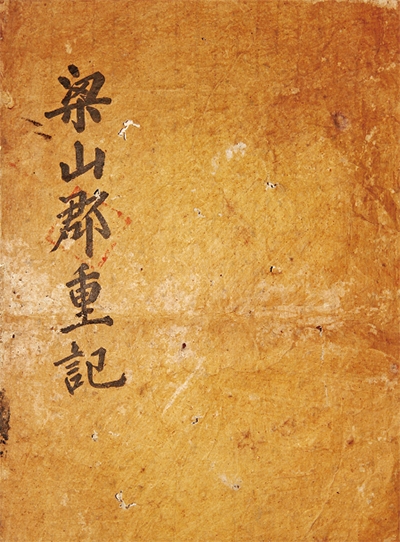 梁山郡重記